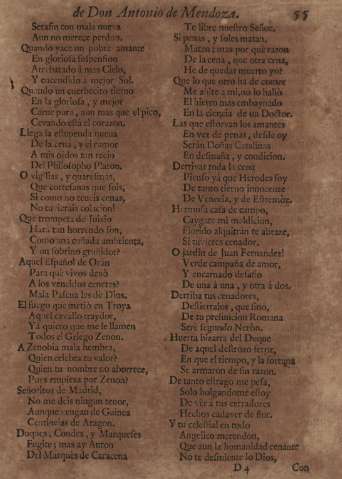 de Don Antonio de Mendoza. 55
Serafin con mala nueva
Aun no merece perdon.
Quando yace un pobre amante
En gloriosa suspension
Arrebatado à mas Cielo,
Y encendido à mejor Sol.
Quando un cuerbecito tierno
En la gloriosa, y mejor
Carne pura, aun mas que el pico,
Cevando està el corazon.
Llega la estupenda nueva
De la cena, y el rumor
A mis oidos tan recio
Del Philosopho Platon.
O vigilias, y quaresmas,
Que cortesanas que sois,
Si como no teneis cenas,
No tuvierais colacion!
Que trompeta de Juizio
Harà tan horrendo son,
Como una cuñada ambrienta,
Y un sobrino gruñidor?
Aquel Español de Oràn
Para què vivos dexò
A los vencidos cenetes?
Mala Pascua les dè Dios.
El fuego que metiò en Troya
Aquel cavallo traydor,
Ya quiero que me le llamen
Todos el Griego Zenon.
A Zenobia mala hembra,
Quien celebra tu valor?
Quien tu nombre no aborrece,
Pues empieza por Zenoa?
Señoritos de Madrid,
No me deis ningun tenor,
Aunque vengan de Guinea
Centinelas de Aragon.
Duques, Condes, y Marqueses
Fugite; mas ay Anton
Del Marquès de Caracena
Te libre nuestro Señor.
Si penas, y soles matan,
Matea; mas por què razon
De la cena, que otra cena,
He de quedar muerto yo?
Que lo que otro ha de comer
Me assiste à mi, no lo hallò
El hierro mas embaynado
En la ciencia de un Doctor.
Las que estorvan los amantes
En vez de penas, desde oy
Seràn Doñas Catalinas
En desmaña, y condicion.
Derrivar toda la cena
Pienso yà que Herodes soy
De tanto cierno innocente
De Venecia, y de Estremòz.
Hermosa casa de campo,
Caygate mi maldicion,
Florido alquitràn te abrase,
Si tuvieres cenador.
O jardin de Juan Fernandez!
Verde campaña de amor,
Y encarnado desafio
De una à una, y otra à dos.
Derriba tus cenadores,
Destierralos, que sino,
De tu presuncion Romana
Serè segundo Neròn.
Huerta bizarra del Duque
De aquel destrozo feroz,
En que el tiempo, y la fortuna
Se armaron de sin razon.
De tanto estrago me pesa,
Solo holgandome estoy
De ver à tus cerradores
Hechos cadaver de flor.
Y tu celestial en todo
Angelico merendon,
Que aun la humanidad cenante
No te desmiente lo Dios,
D 4 Con